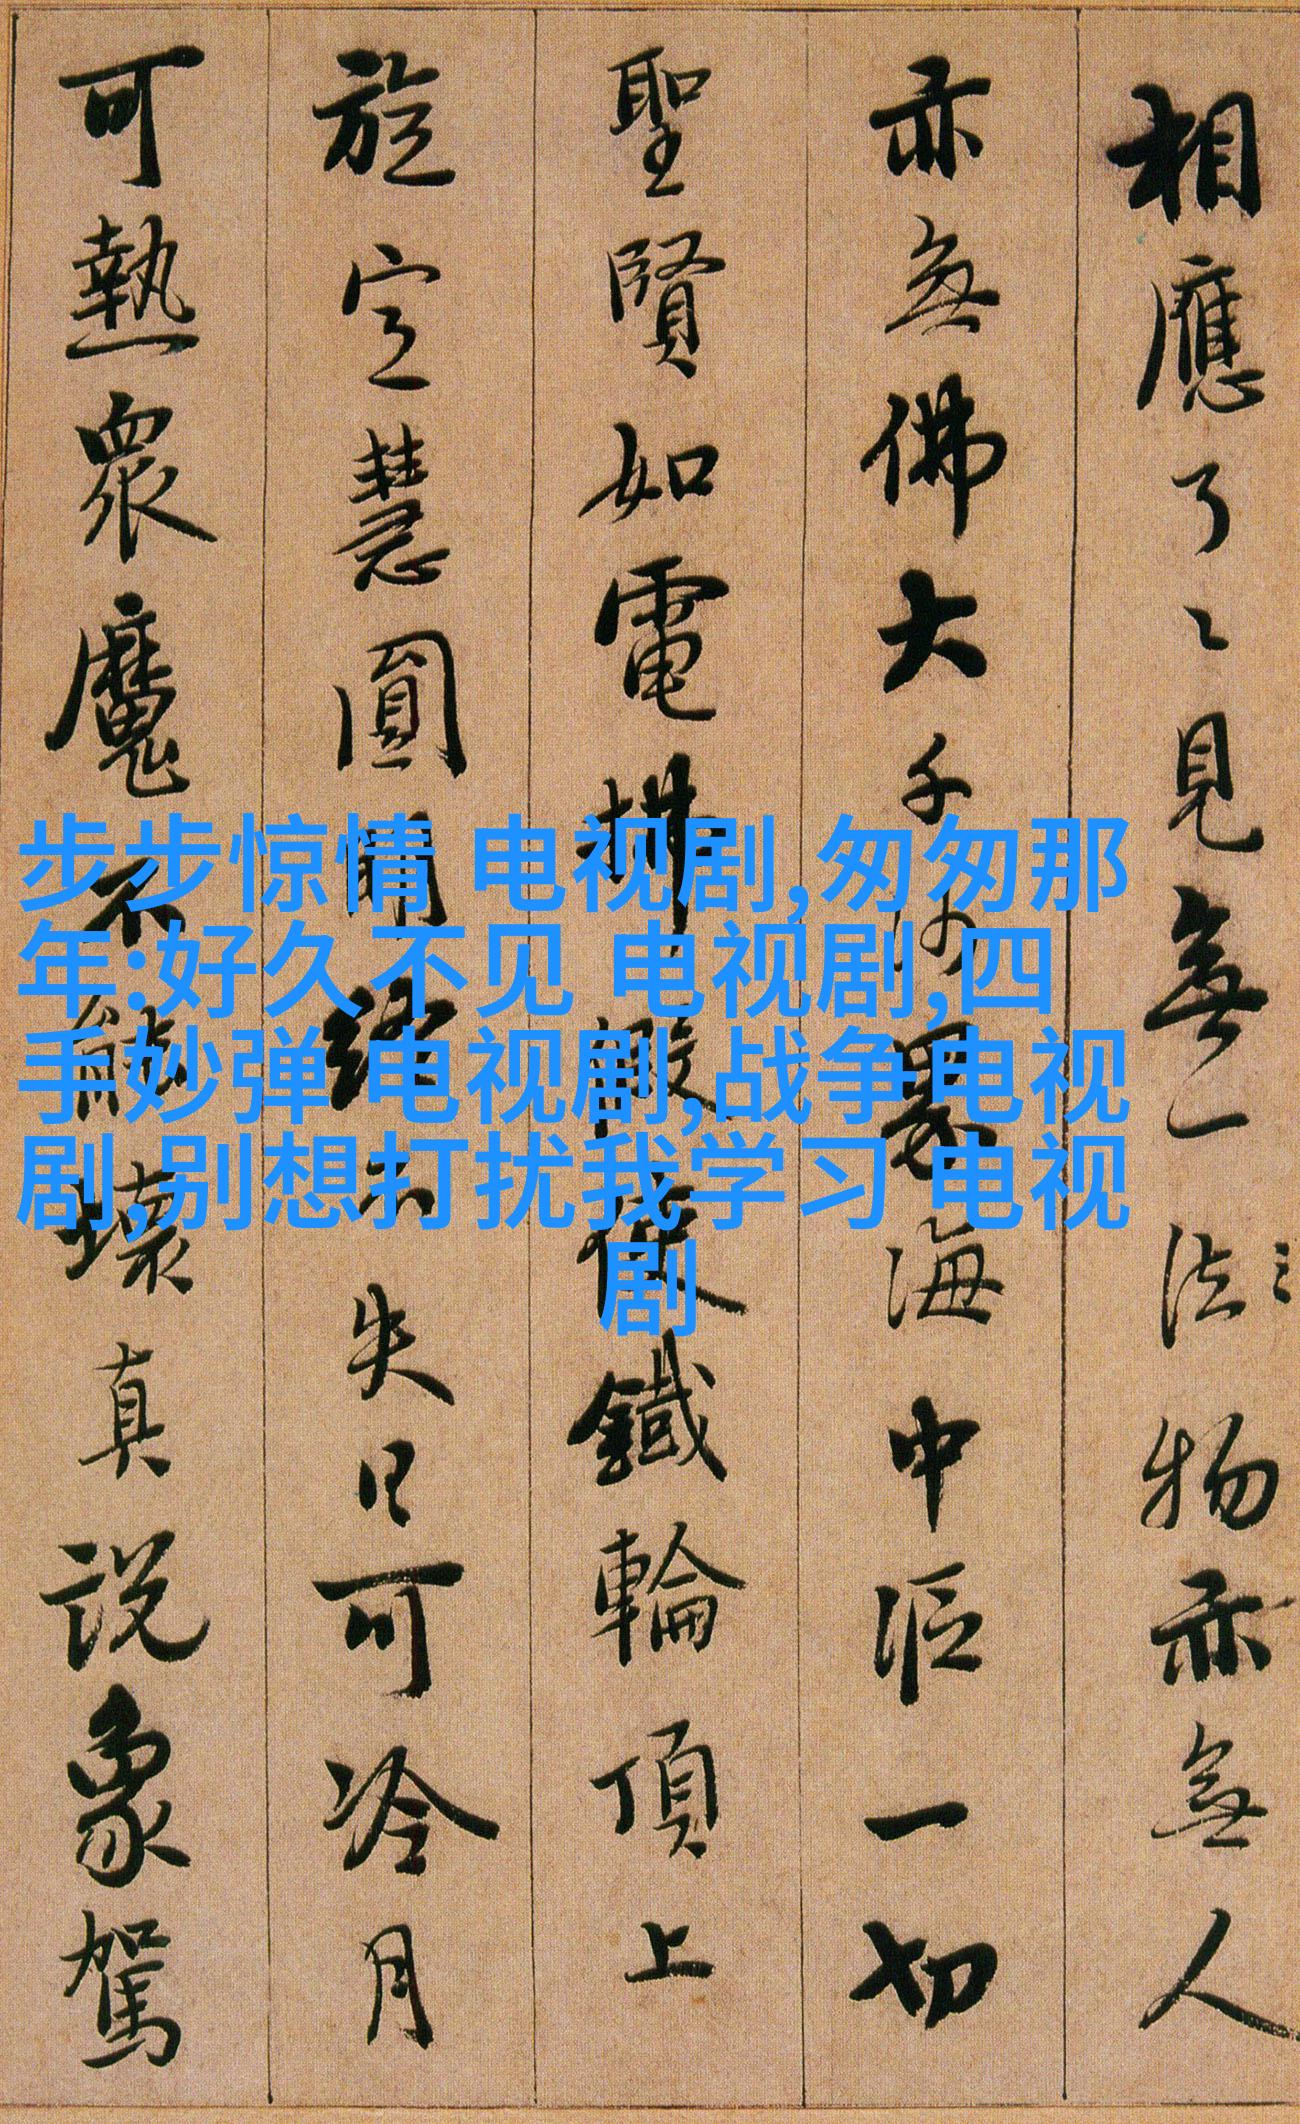 相應了〻見無一法物亦無人
亦無佛大千沙界海中漚一切
聖賢如電拂假使鐵輪頂上
旋定慧圓明終不失日可冷月
可熱眾魔不能壞真說象駕
步步惊情 电视剧,匆匆那
年:好久不见 电视剧,四
手妙弹 电视剧,战争电视
剧,别想打扰我学习 电视
剧